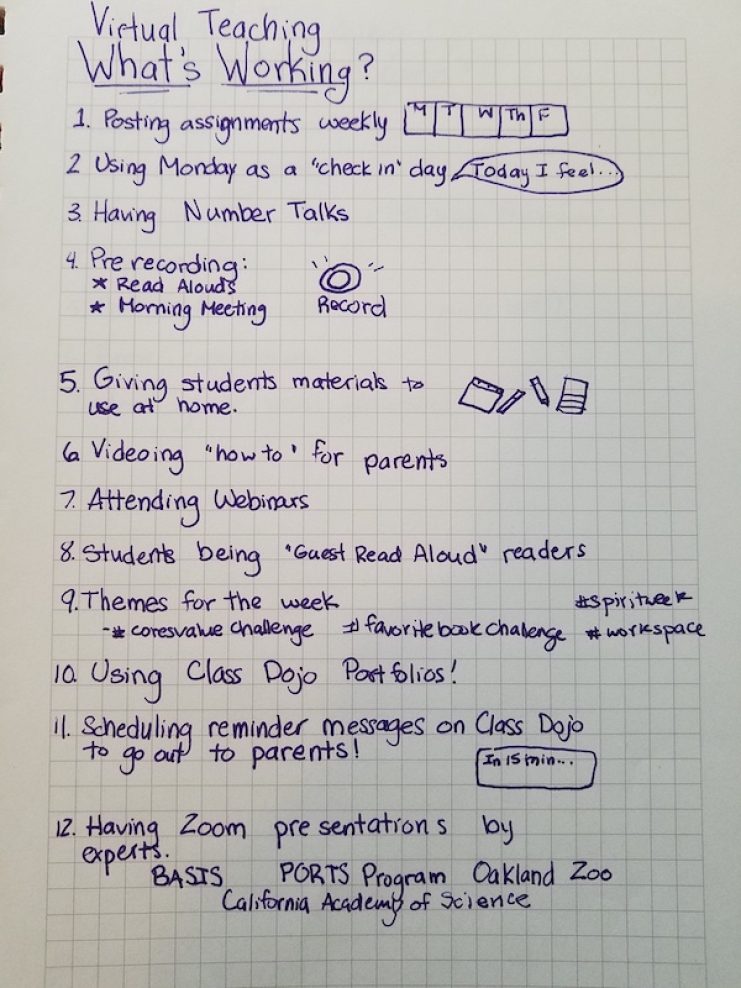 Virtual Teaching
What's Working?
1. Posting assignments weekly M T W Th F
2 Using Monday as a "check in" day Today I feel...
3. Having Number Talks
4. Pre recording:
* Read Alouds
* Morning Meeting Record
5. Giving students materials to
use at home.
6. Videoing "how to" for parents
7. Attending Webinars
8. Students being "Guest Read Aloud" readers
9. Themes for the week #spiritweek
-# coresvalue challenge #favoritebookchallenge #workspace
10. Using Class Dojo Portfolios!
11. Scheduling reminder messages on Class Dojo
to go out to parents! In 15 min...
12. Having Zoom presentations by
experts.
BASIS PORTS Program Oakland Zoo
California Academy of Science